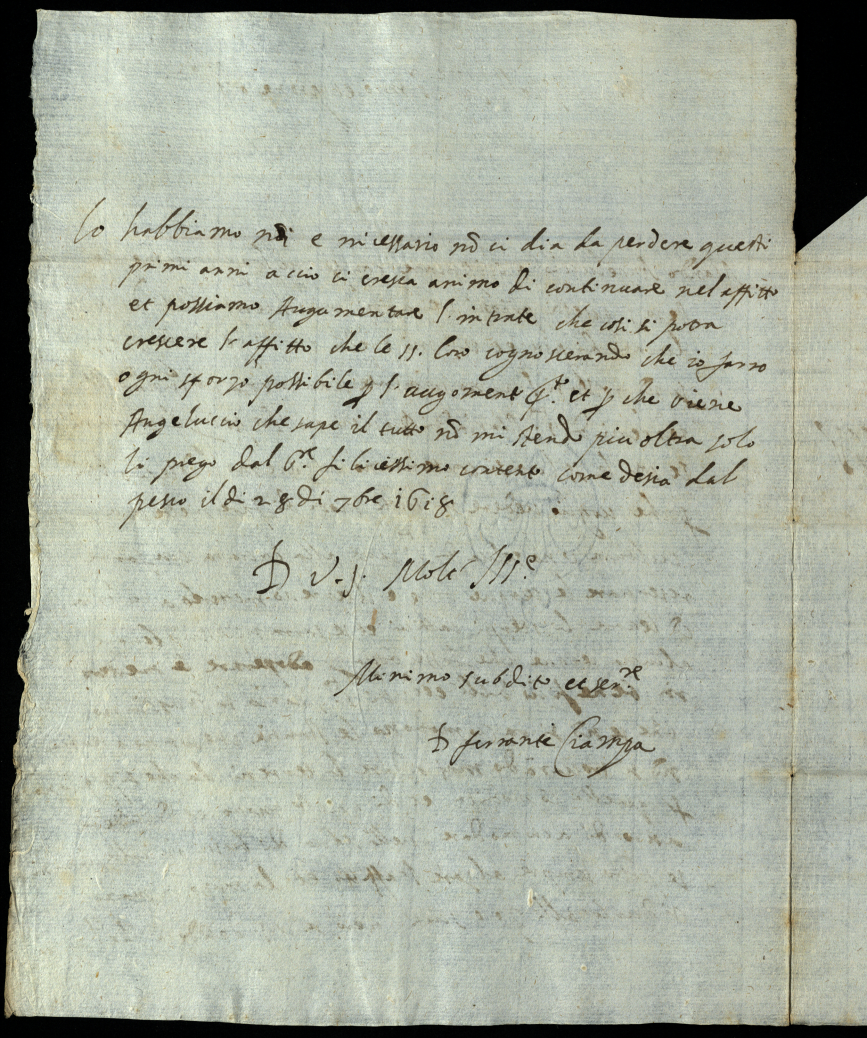 lo habbiamo noi e nicessario nõ ci dia da perdere questi
primi anni accio ci cresca animo di continuare nel affitto
et possiamo Augumentare l'intrate che cosi si potra
crescere l'affitto che le SS. loro cognoscierando che io farro
ogni sforzo possibile p l'augoment et p che viene
Angeluccio che sape il tutto nõ mi stendo piu oltra solo
li prego dal felicissimo contento come desia dal
pesco il di 28 di 7bre 1618
D V. S. Molt Ill.e
Minimo subdito et ser.re
D ferrante Ciampa